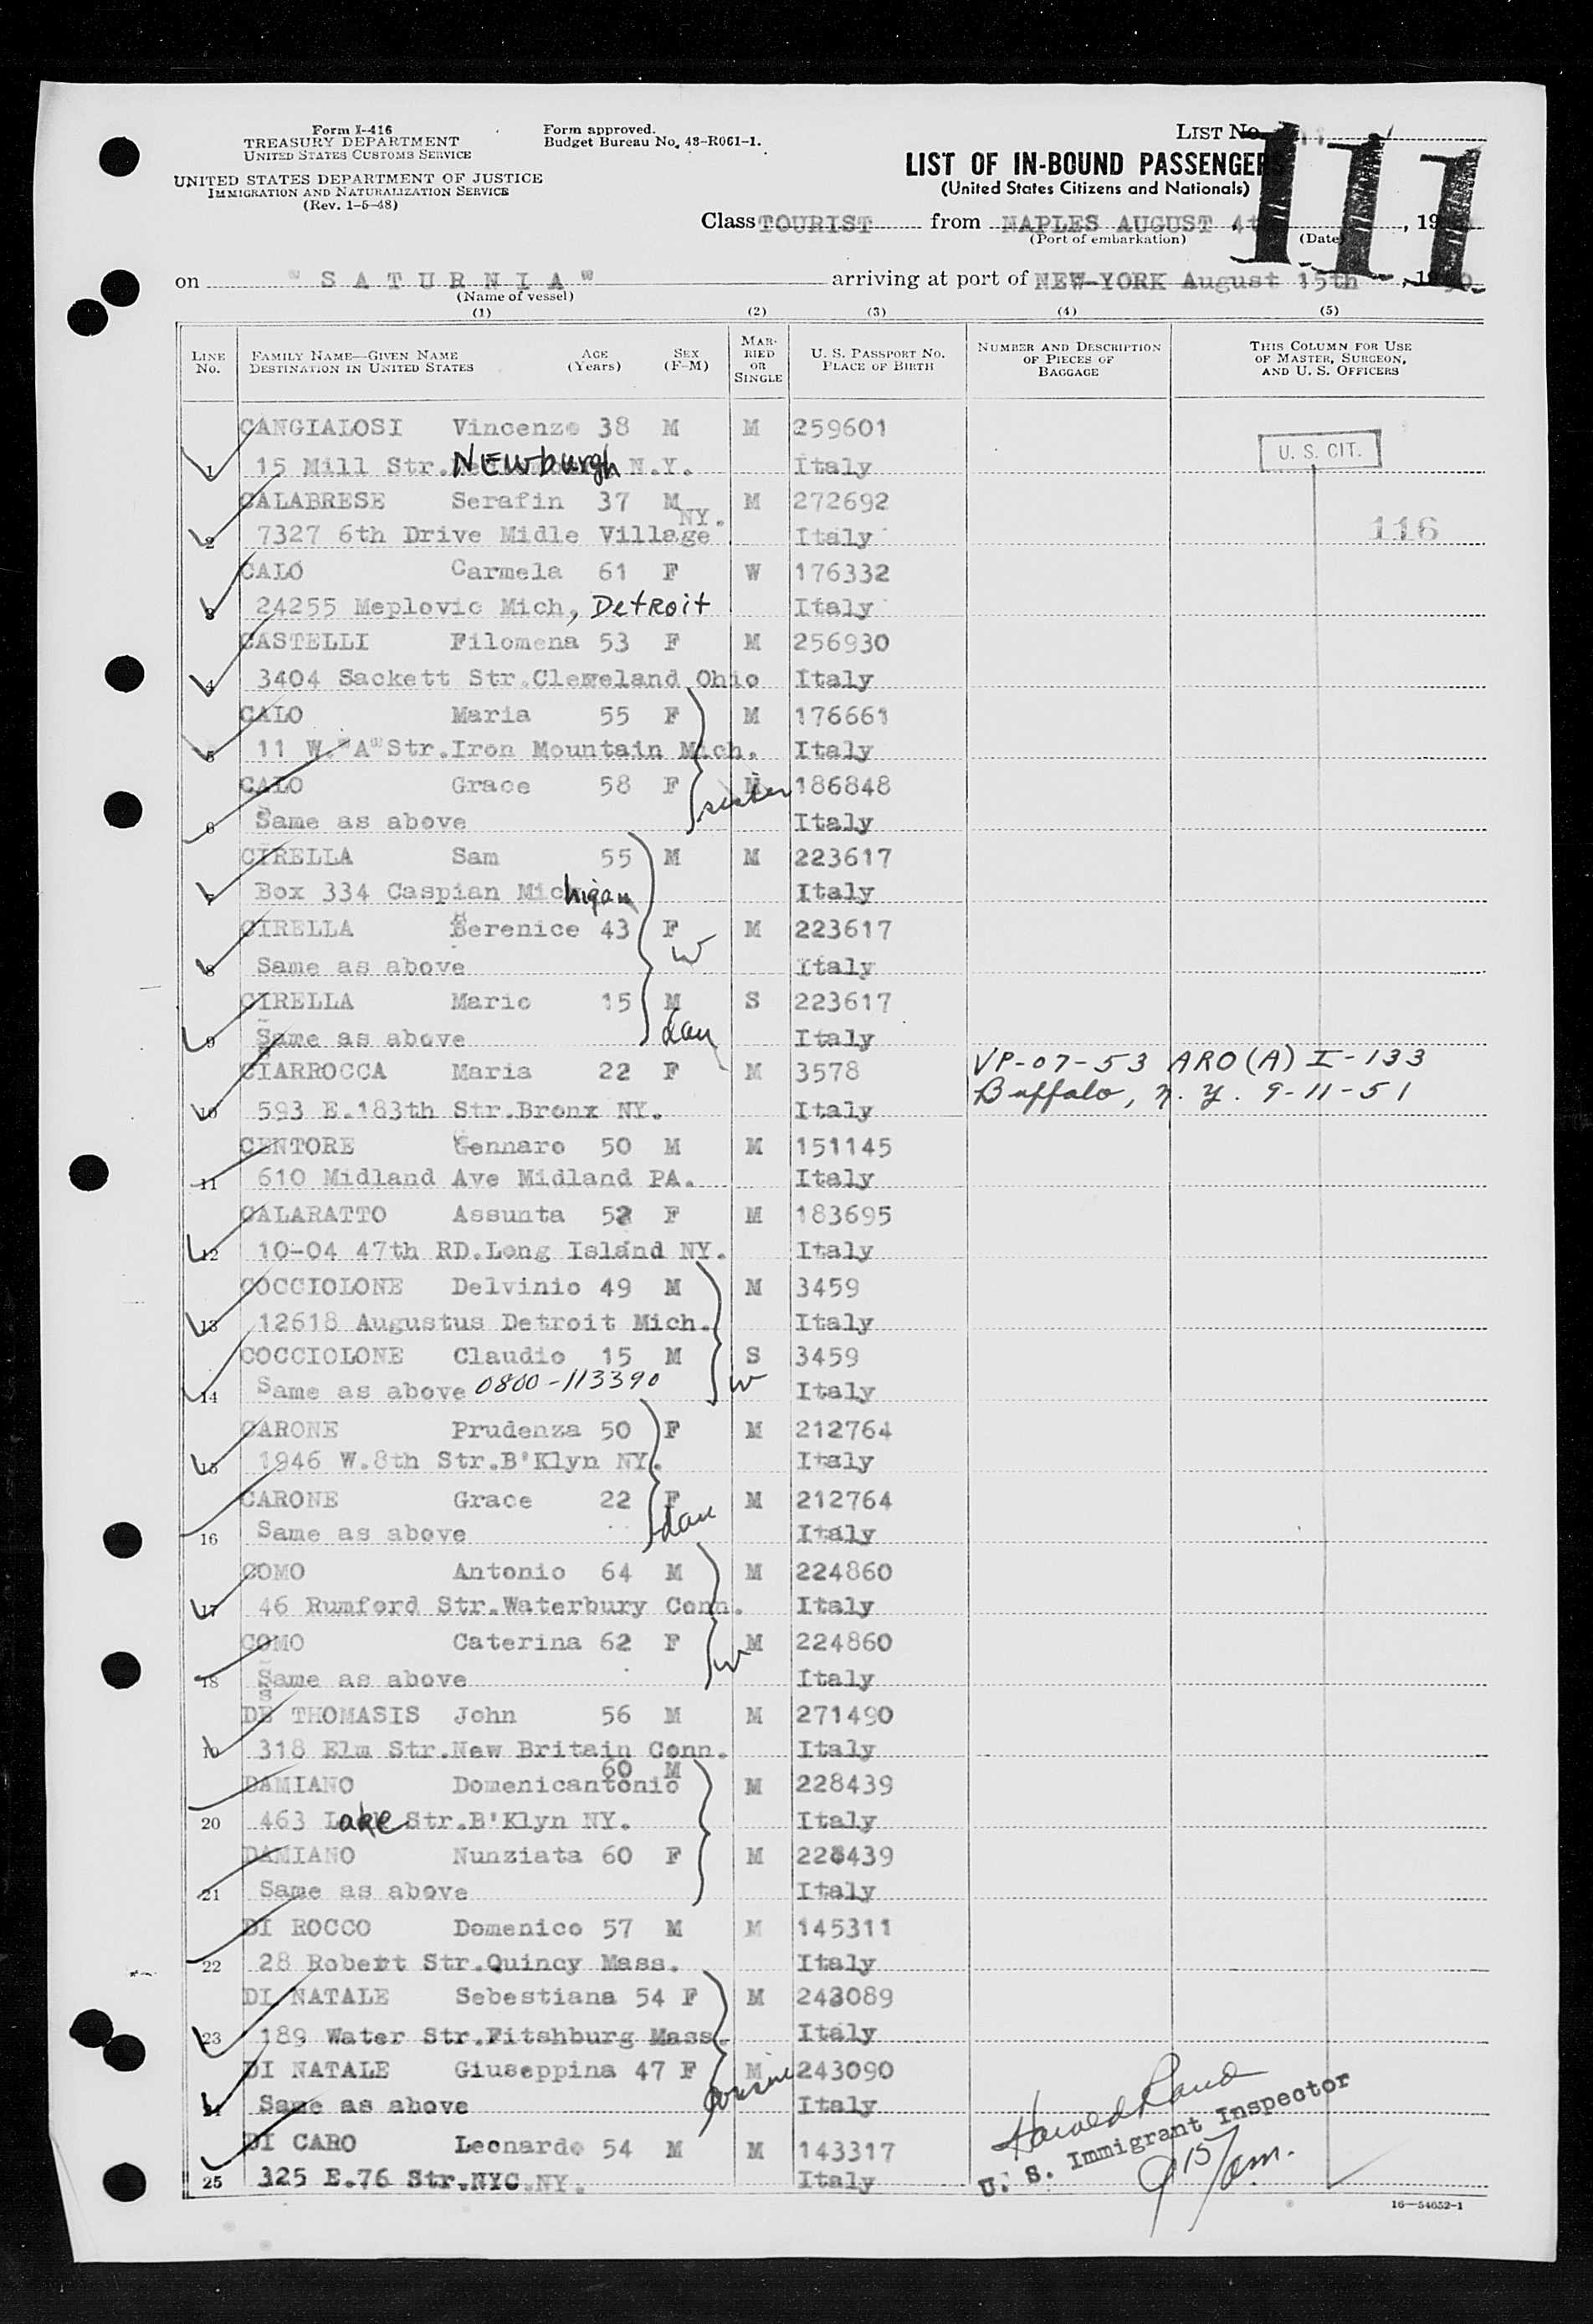 Form I-416
TREASURY DEPARTMENT
UNITED STATES CUSTOMS SERVICE
UNITED STATES DEPARTMENT OF JUSTICE
IMMIGRATION AND NATURALIZATION SERVICE
(Rev. 1-5-48)
Form approved.
Budget Bureau No. 43-R061-1.
LIST No.
111
LIST OF IN-BOUND PASSENGERS
(United States Citizens and Nationals)
Class TOURIST from NAPLES AUGUST 4t , 19
(Port of embarkation) (Date)
on "SATURNIA" arriving at port of NEW-YORK August 15th , 1950
(Name of vessel)
(1) (2) (3) (4) (5)
LINE No. FAMILY NAME—GIVEN NAME DESTINATION IN UNITED STATES AGE (Years) SEX (F-M) MARRIED OR SINGLE U. S. PASSPORT NO. PLACE OF BIRTH NUMBER AND DESCRIPTION OF PIECES OF BAGGAGE THIS COLUMN FOR USE OF MASTER, SURGEON, AND U. S. OFFICERS
CANGIALOSI Vincenzo 38 M M 259601
1 15 Mill Str. NEWburgh N.Y. Italy U. S. CIT.
CALABRESE Serafin 37 M M 272692
NY.
2 7327 6th Drive Midle Village Italy 116
CALO Carmela 61 F W 176332
3 24255 Meplovic Mich, Detroit Italy
CASTELLI Filomena 53 F M 256930
4 3404 Sackett Str.Cleweland Ohio Italy
CALO Maria 55 F M 176661
5 11 W."A"Str.Iron Mountain Mich. Italy
CALO Grace 58 F M 186848
6 Same as above sister Italy
CIRELLA Sam 55 M M 223617
7 Box 334 Caspian Michigan Italy
CIRELLA Berenice 43 F M 223617
8 Same as above W Italy
CIRELLA Mario 15 M S 223617
9 Same as above dau Italy
CIARROCCA Maria 22 F M 3578 VP-07-53 ARO(A) I-133
10 593 E.183th Str.Bronx NY. Italy Buffalo, N.Y. 9-11-51
CENTORE Gennaro 50 M M 151145
11 610 Midland Ave Midland PA. Italy
CALARATTO Assunta 52 F M 183695
12 10-04 47th RD.Long Island NY. Italy
COCCIOLONE Delvinio 49 M M 3459
13 12618 Augustus Detroit Mich. Italy
COCCIOLONE Claudio 15 M S 3459
14 Same as above 0800-113390 W Italy
CARONE Prudenza 50 F M 212764
15 1946 W.8th Str.B'Klyn NY. Italy
CARONE Grace 22 F M 212764
16 Same as above dau Italy
COMO Antonio 64 M M 224860
17 46 Rumford Str.Waterbury Conn. Italy
COMO Caterina 62 F M 224860
18 Same as above W Italy
DE THOMASIS John 56 M M 271490
19 318 Elm Str.New Britain Conn. Italy
60 M
DAMIANO Domenicantonio M 228439
20 463 Lake Str.B'Klyn NY. Italy
DAMIANO Nunziata 60 F M 228439
21 Same as above Italy
DI ROCCO Domenico 57 M M 145311
22 28 Robert Str.Quincy Mass. Italy
DI NATALE Sebestiana 54 F M 243089
23 189 Water Str.Fitshburg Mass. Italy
DI NATALE Giuseppina 47 F M 243090
24 Same as above cousine Italy
DI CARO Leonardo 54 M M 143317
25 325 E.76 Str.NYC.NY. Italy
Harold Rand
U. S. Immigrant Inspector
9 15/am.
16—54652-1